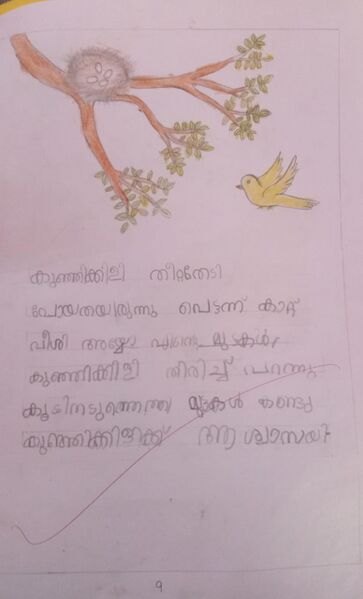 കുഞ്ഞിക്കിളി തീറ്റതേടി
പോയതയിരുന്നു പെട്ടന്ന് കാറ്റ്
വീശി അയ്യോ മുട്ടകൾ,
കുഞ്ഞിക്കിളി തിരിച്ച് പറന്നു
കൂടിനടുത്തെത്തി മുട്ടകൾ കണ്ടു
കുഞ്ഞിക്കിളിക്ക് ആശ്വാസയി
9